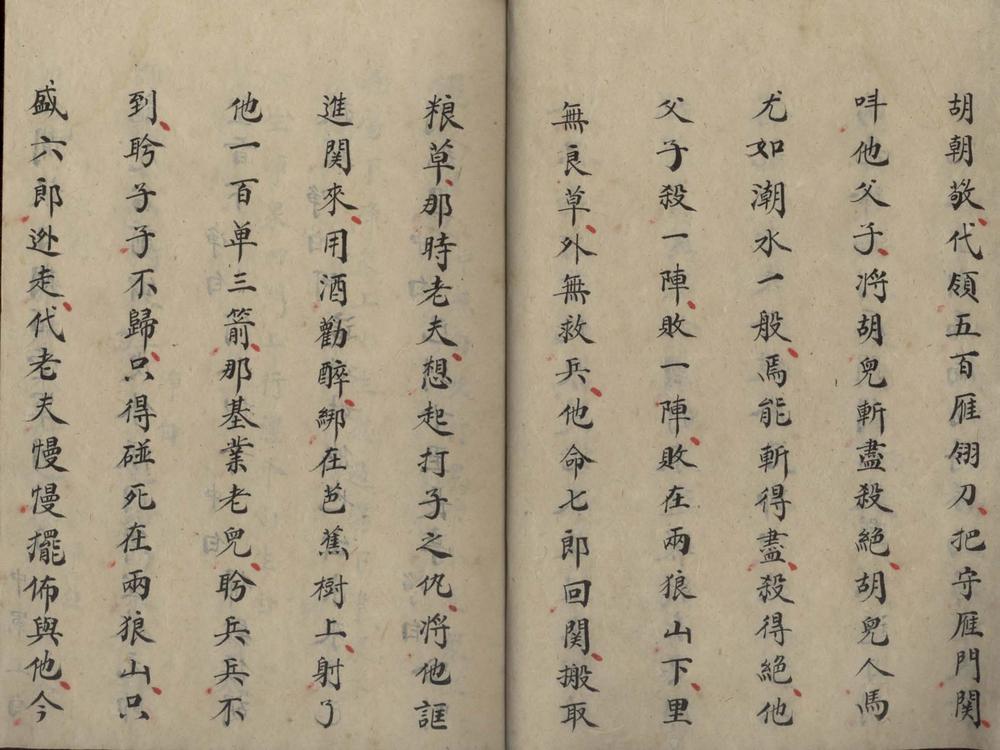 胡朝敬代領五百雁翎刀把守雁門関
呌他父子將胡兒斬盡殺絕胡兒人馬
尤如潮水一般焉能斬得盡殺得絕他
父子殺一陣敗一陣敗在兩狼山下里
無良草外無救兵他命七郎回関搬取
粮草那時老夫想起打子之仇將他誆
進関來用酒勸醉綁在芭蕉樹上射了
他一百单三箭那基業老兒盻兵兵不
到盻子子不歸只得碰死在兩狼山只
盛六郎迯走代老夫慢慢擺佈與他今